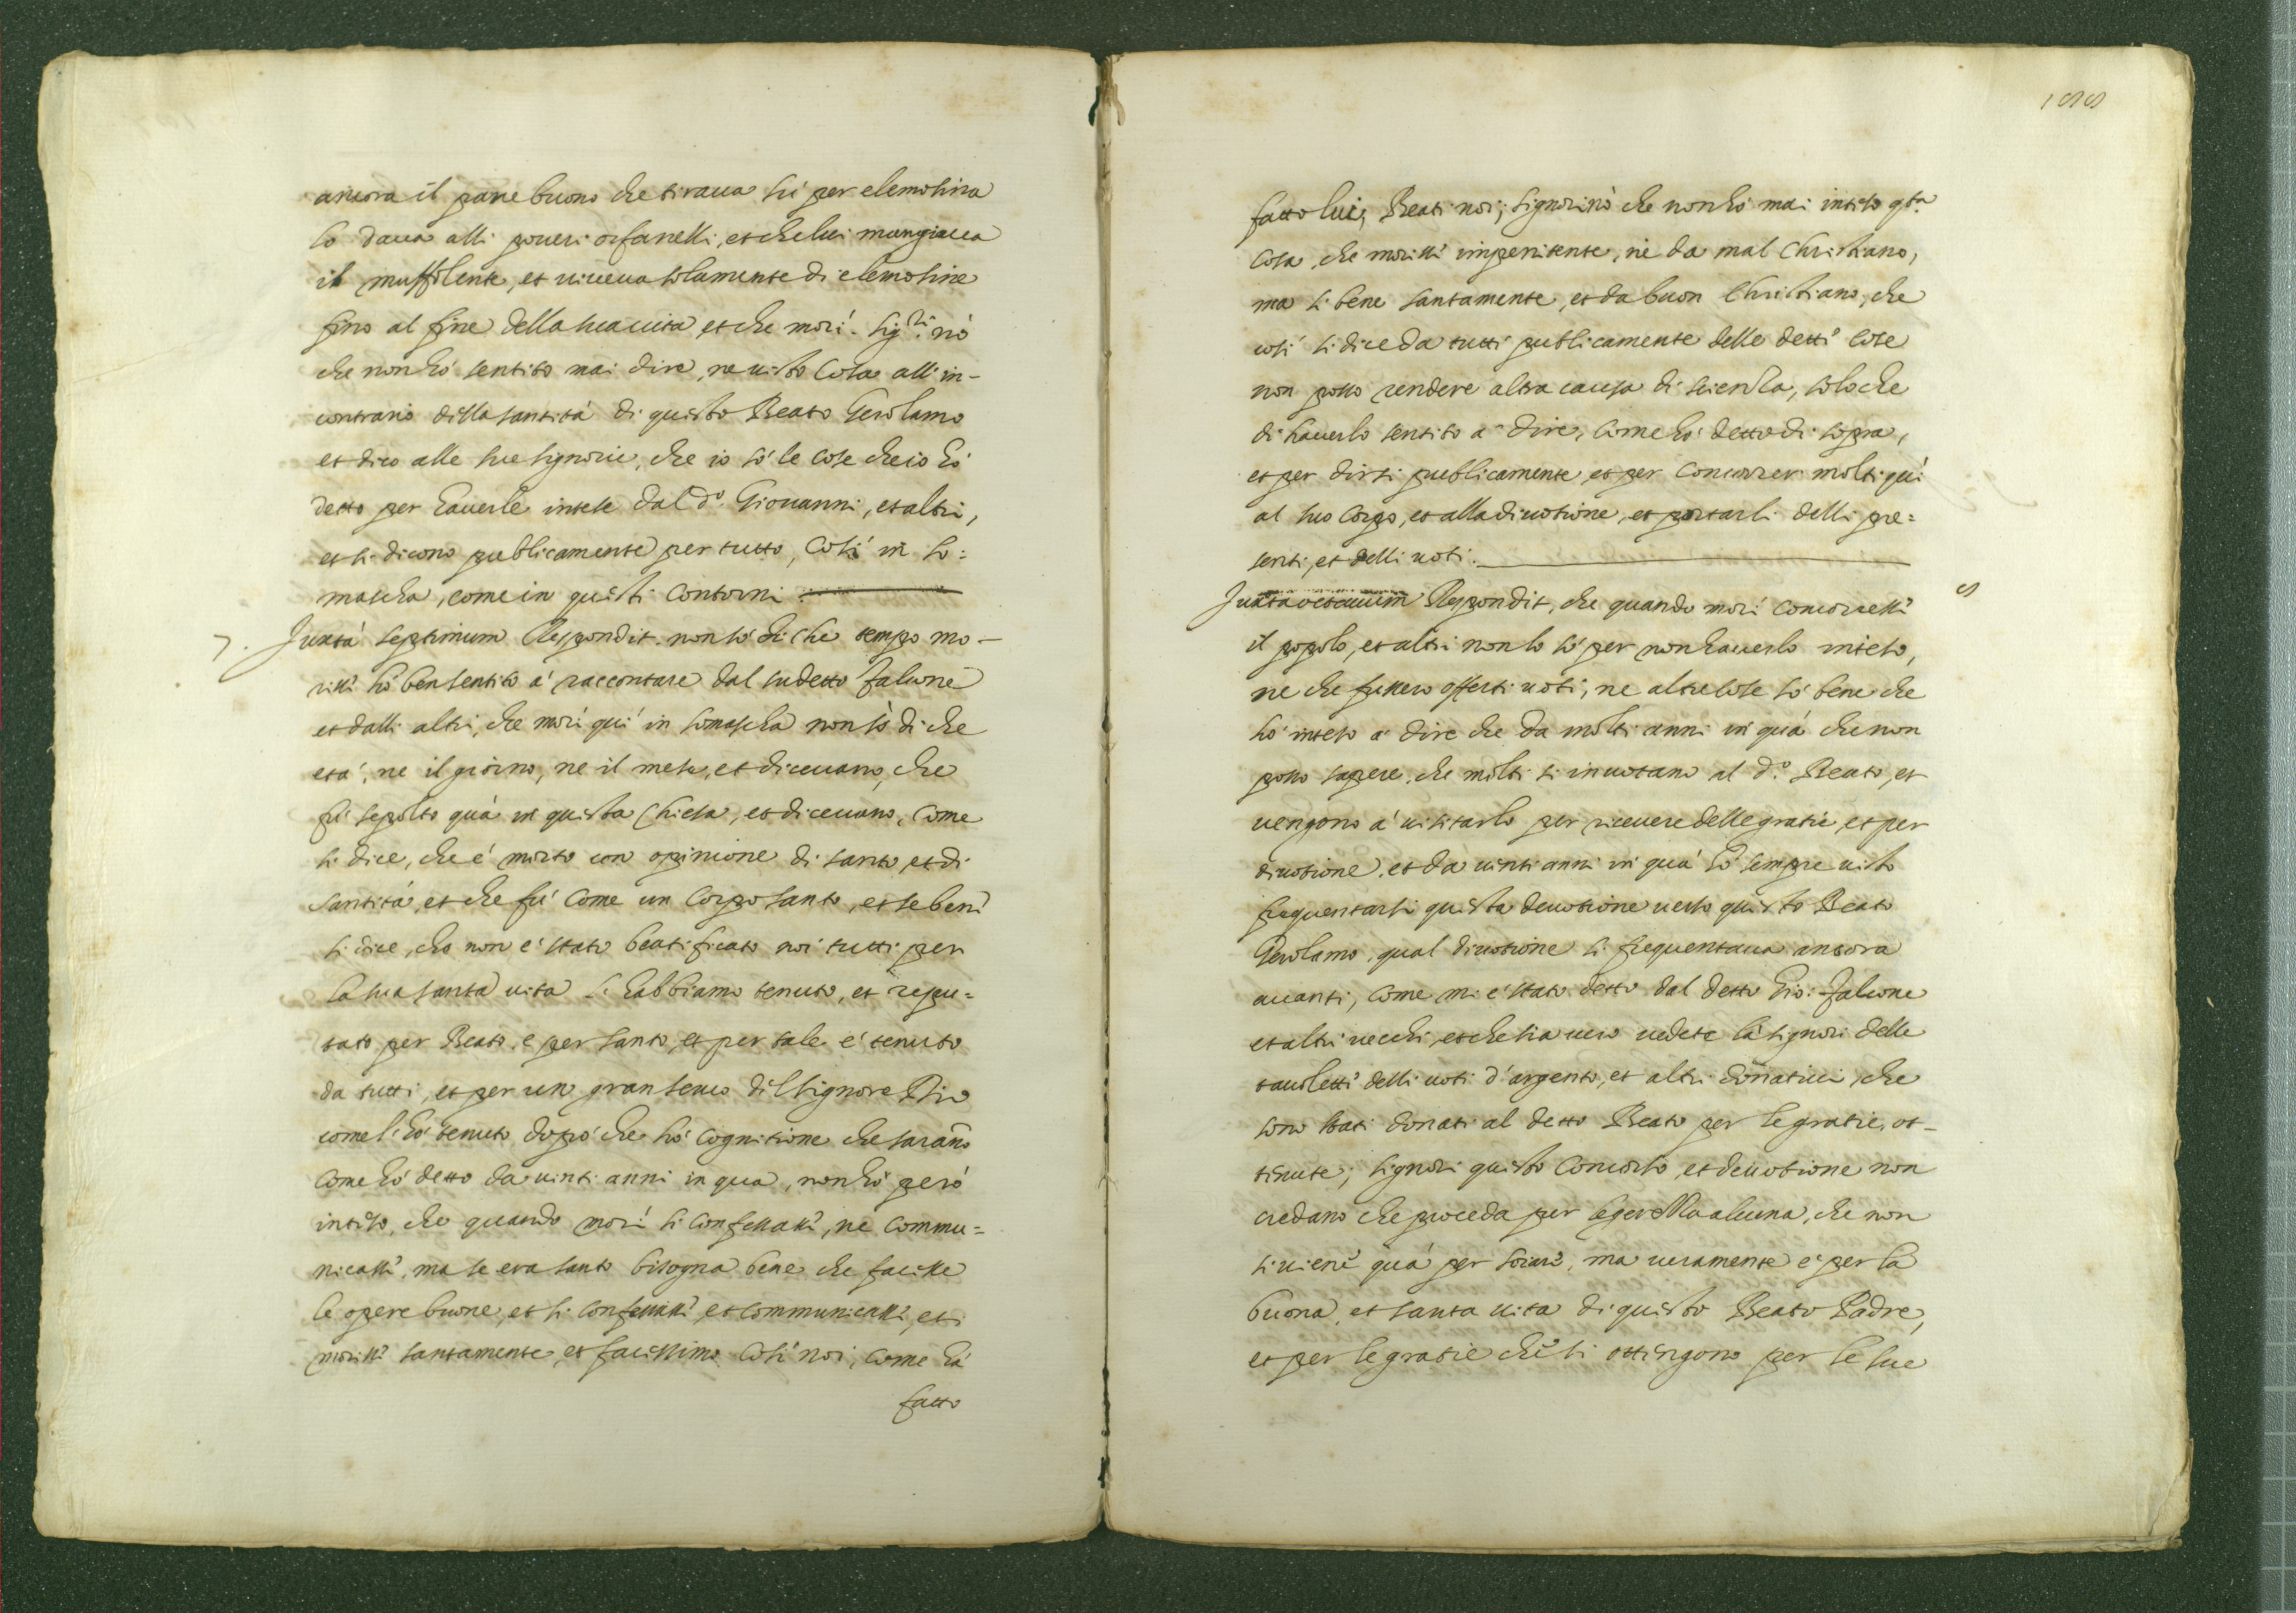 ancora il pane buono che tirava sù per elemosina
lo daua alli poueri orfanelli, et che lui mangiaua
il muffolente, et uiueua solamente di elemosine
fino al fine della sua uita et che morì. Sig.ri nò
che non hò sentito mai dire, ne uisto cosa all'in-
contrario della santità di questo Beato Gerolamo
et dico alle sue signorie, che io sò le cose che io hò
detto per hauerle intese dal d.o Giouanni, et altri,
et si dicono publicamente per tutto, così in So:
mascha, come in questi contorni.
7. Juxta septimum Respondit. non sò di che tempo mo-
risse hò ben sentito à raccontare dal sudetto falcone
et dalli altri, che morì quì in Somascha non sò di che
età, ne il giorno, ne il mese, et diceuano, che
fù sepolto quà in questa Chiesa, et diceuano, come
si dice, che è morto con opinione di santo, et di
santità, et che fù come un Corpo santo, et se bene
si dice, che non è stato beatificato noi tutti per
la sua santa uita l'habbiamo tenuto, et repu=
tato per Beato, e per santo, et per tale è tenuto
da tutti, et per un gran seruo del Signore Dio
come l'hò tenuto dopò che hò cognitione che saranno
come hò detto da uinti anni in qua, non hò però
inteso, che quando morì si confessasse, ne commu=
nicasse, ma se era santo bisogna bene che facesse
le opere buone, et si confessasse, et communicasse, et
morisse santamente, et facessimo così noi, come hà
fatto
188
fatto lui, Beati noi; Signori nò che non hò mai inteso q.sta
cosa, che morisse impenitente, ne da mal Christiano,
ma si bene santamente, et da buon Christiano, che
così si dice da tutti publicamente delle dette cose
non posso rendere altra causa di scienza, solo che
di hauerlo sentito à dire, come hò detto di sopra,
et per dirsi publicamente, et per concorrer molti quì
al suo corpo, et alla diuotione, et portarli delli pre=
senti, et delli uoti.
Juxta octauum Respondit, che quando morì concorresse 8
il popolo, et altri non lo sò per non hauerlo inteso,
ne che fussero offerti uoti, ne altre cose sò bene che
hò inteso à dire che da molti anni in quà che non
posso sapere, che molti si inuotano al d.o Beato, et
uengono à uisitarlo per riceuere delle gratie, et per
diuotione, et da uinti anni in quà hò sempre uisto
frequentarsi questa deuotione uerso questo Beato
Gerolamo, qual diuotione si frequentaua ancora
auanti, come mi è stato detto dal detto Gio: falcone
et altri uecchi, et che sia uero uedete là signori delle
tauolette delli uoti d'argento, et altri donatiui, che
sono stati donati al detto Beato per le gratie, ot-
tenute; signori questo concorso, et deuotione non
credano che proceda per legerezza alcuna, che non
si uiene quà per, ma ueramente è per la
buona, et santa uita di questo Beato Padre,
et per le gratie che si ottengono per le sue